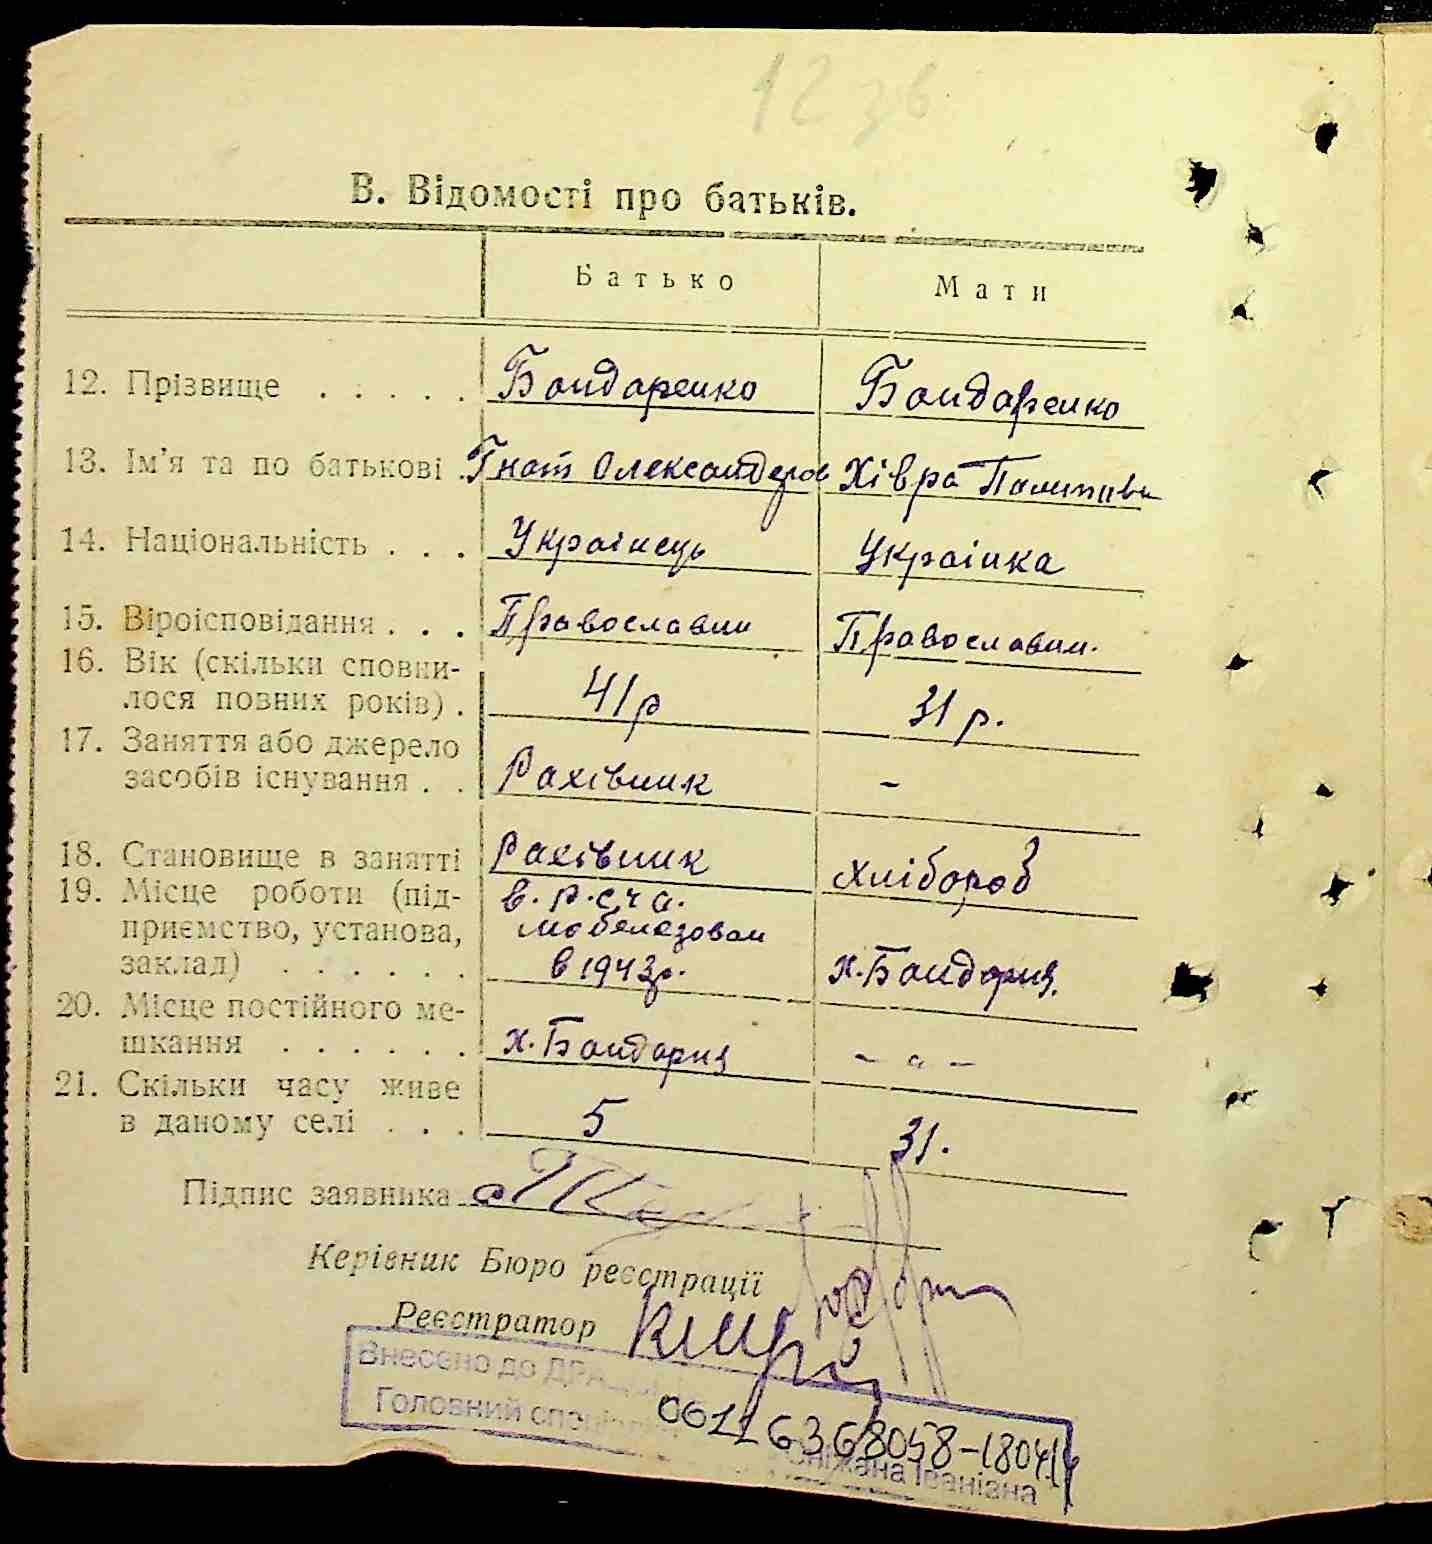 12 36
В. Відомості про батьків.
Батько Мати
12. Прізвище . . . . . Бондаренко Бондаренко
13. Ім'я та по батькові . Гнат Олександров Хівря
14. Національність . . . Українець Українка
15. Віроісповідання . . . Православни Православн.
16. Вік (скільки сповни-
лося повних років) . 41р 31 р.
17. Заняття або джерело
засобів існування . . Рахівник -
18. Становище в занятті Рахівник хлібороб
19. Місце роботи (під- в. Р.С.Ч.А.
приємство, установа, мобелезован
заклад) . . . . . . в 1943р. х. Бондарня
20. Місце постійного ме-
шкання . . . . . . х. Бондарня - " -
21. Скільки часу живе
в даному селі . . . 5 31.
Підпис заявника
Керівник Бюро реєстрації
Реєстратор
Внесено до
Головний
00116368058-18041
Сніжана Іванівна